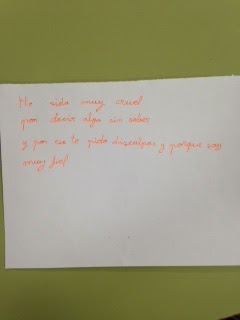 He sido muy cruel
por decir algo sin saber
y por eso te pido disculpas y porque soy
muy fiel